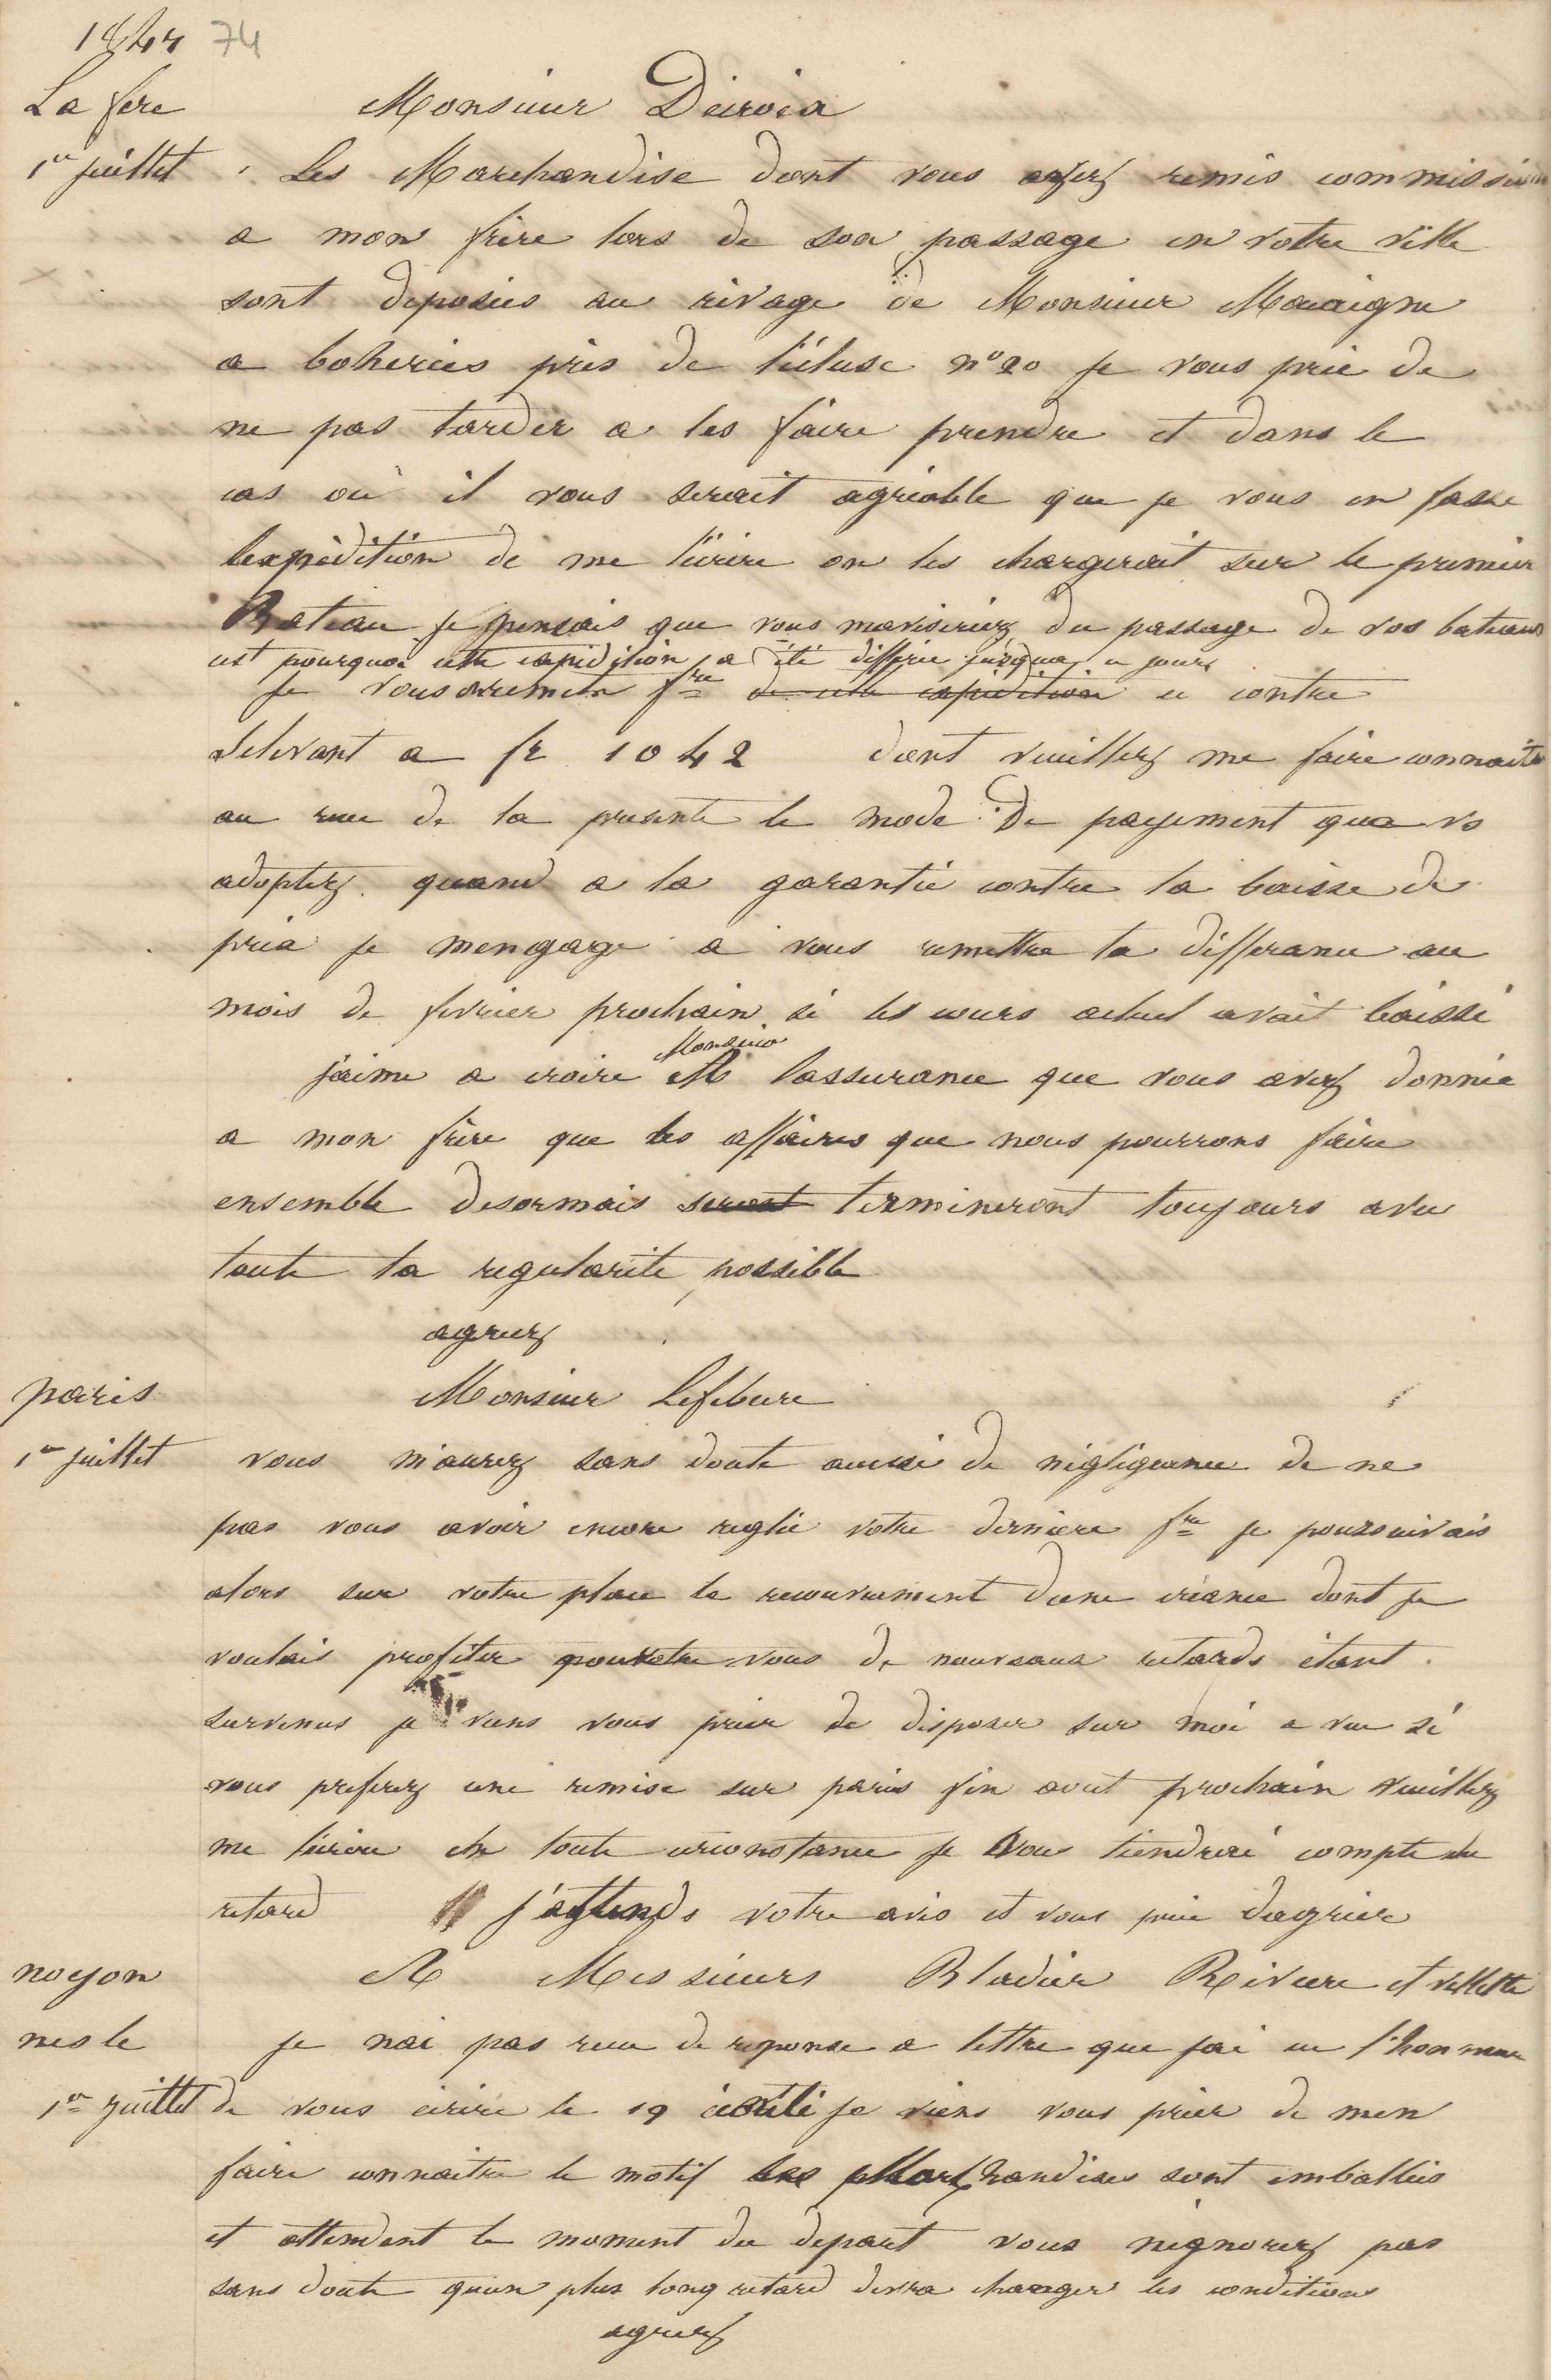 1844 74
La fere Monsieur Dervin
1er juillet Les Marchandise dont vous avez remis commission
a mon frère lors de son passage en votre ville
sont deposées au rivage de Monsieur Macaigne
a boheries près de l'écluse n° 20 je vous prie de
ne pas tarder a les faire prendre et dans le
cas où il vous serait agréable que je vous en fasse
lexpédition de me l'écrire on les chargerait sur le premier
Bateau je pensais que vous maviseriez du passage de vos bateaux
cest pourquoi cette expédition a été differee jusqua ce jour
Je vous remets fre de cette expedition ci contre
Selevant a fr 1042 dont veuillez me faire connaitre
au recu de la presente le mode de payement que vs
adoptez quand a la garantie contre la baisse de
prix je mengage a vous remettre la differance au
mois de fevrier prochain si les cours actuel avait baissé
Monsieur
j'aime a croire M lassurance que vous avez donnée
a mon frère que les affaires que nous pourrons faire
ensemble desormais seront termineront toujours avec
toute la regularite possible
agreez
paris Monsieur Lefebure
1er juillet vous m'aurez sans doute accusé de négligeance de ne
pas vous avoir encore reglé votre derniere fre je poursuivais
alors sur votre place le recouvrement dune créance dont je
voulais profiter pour vous de nouveaux retards étant
survenus je viens vous prier de disposer sur moi a vue si
vous preferez une remise sur paris fin aout prochain veuillez
me l'écrire en toute circonstance je vous tiendrai compte du
retard j'attends votre avis et vous prie dagréer
noyon A Messieurs Bladier Riviere et Vellette
nesle je nai pas recu de reponse a lettre que jai eu l'honneur
1er juillet de vous écrire le 19 écoulé je viens vous prier de men
faire connaitre le motif les Marchandises sont emballées
et attendent le moment du depart vous nignorez pas
sans doute quun plus long retard devra changer les conditions
agreez